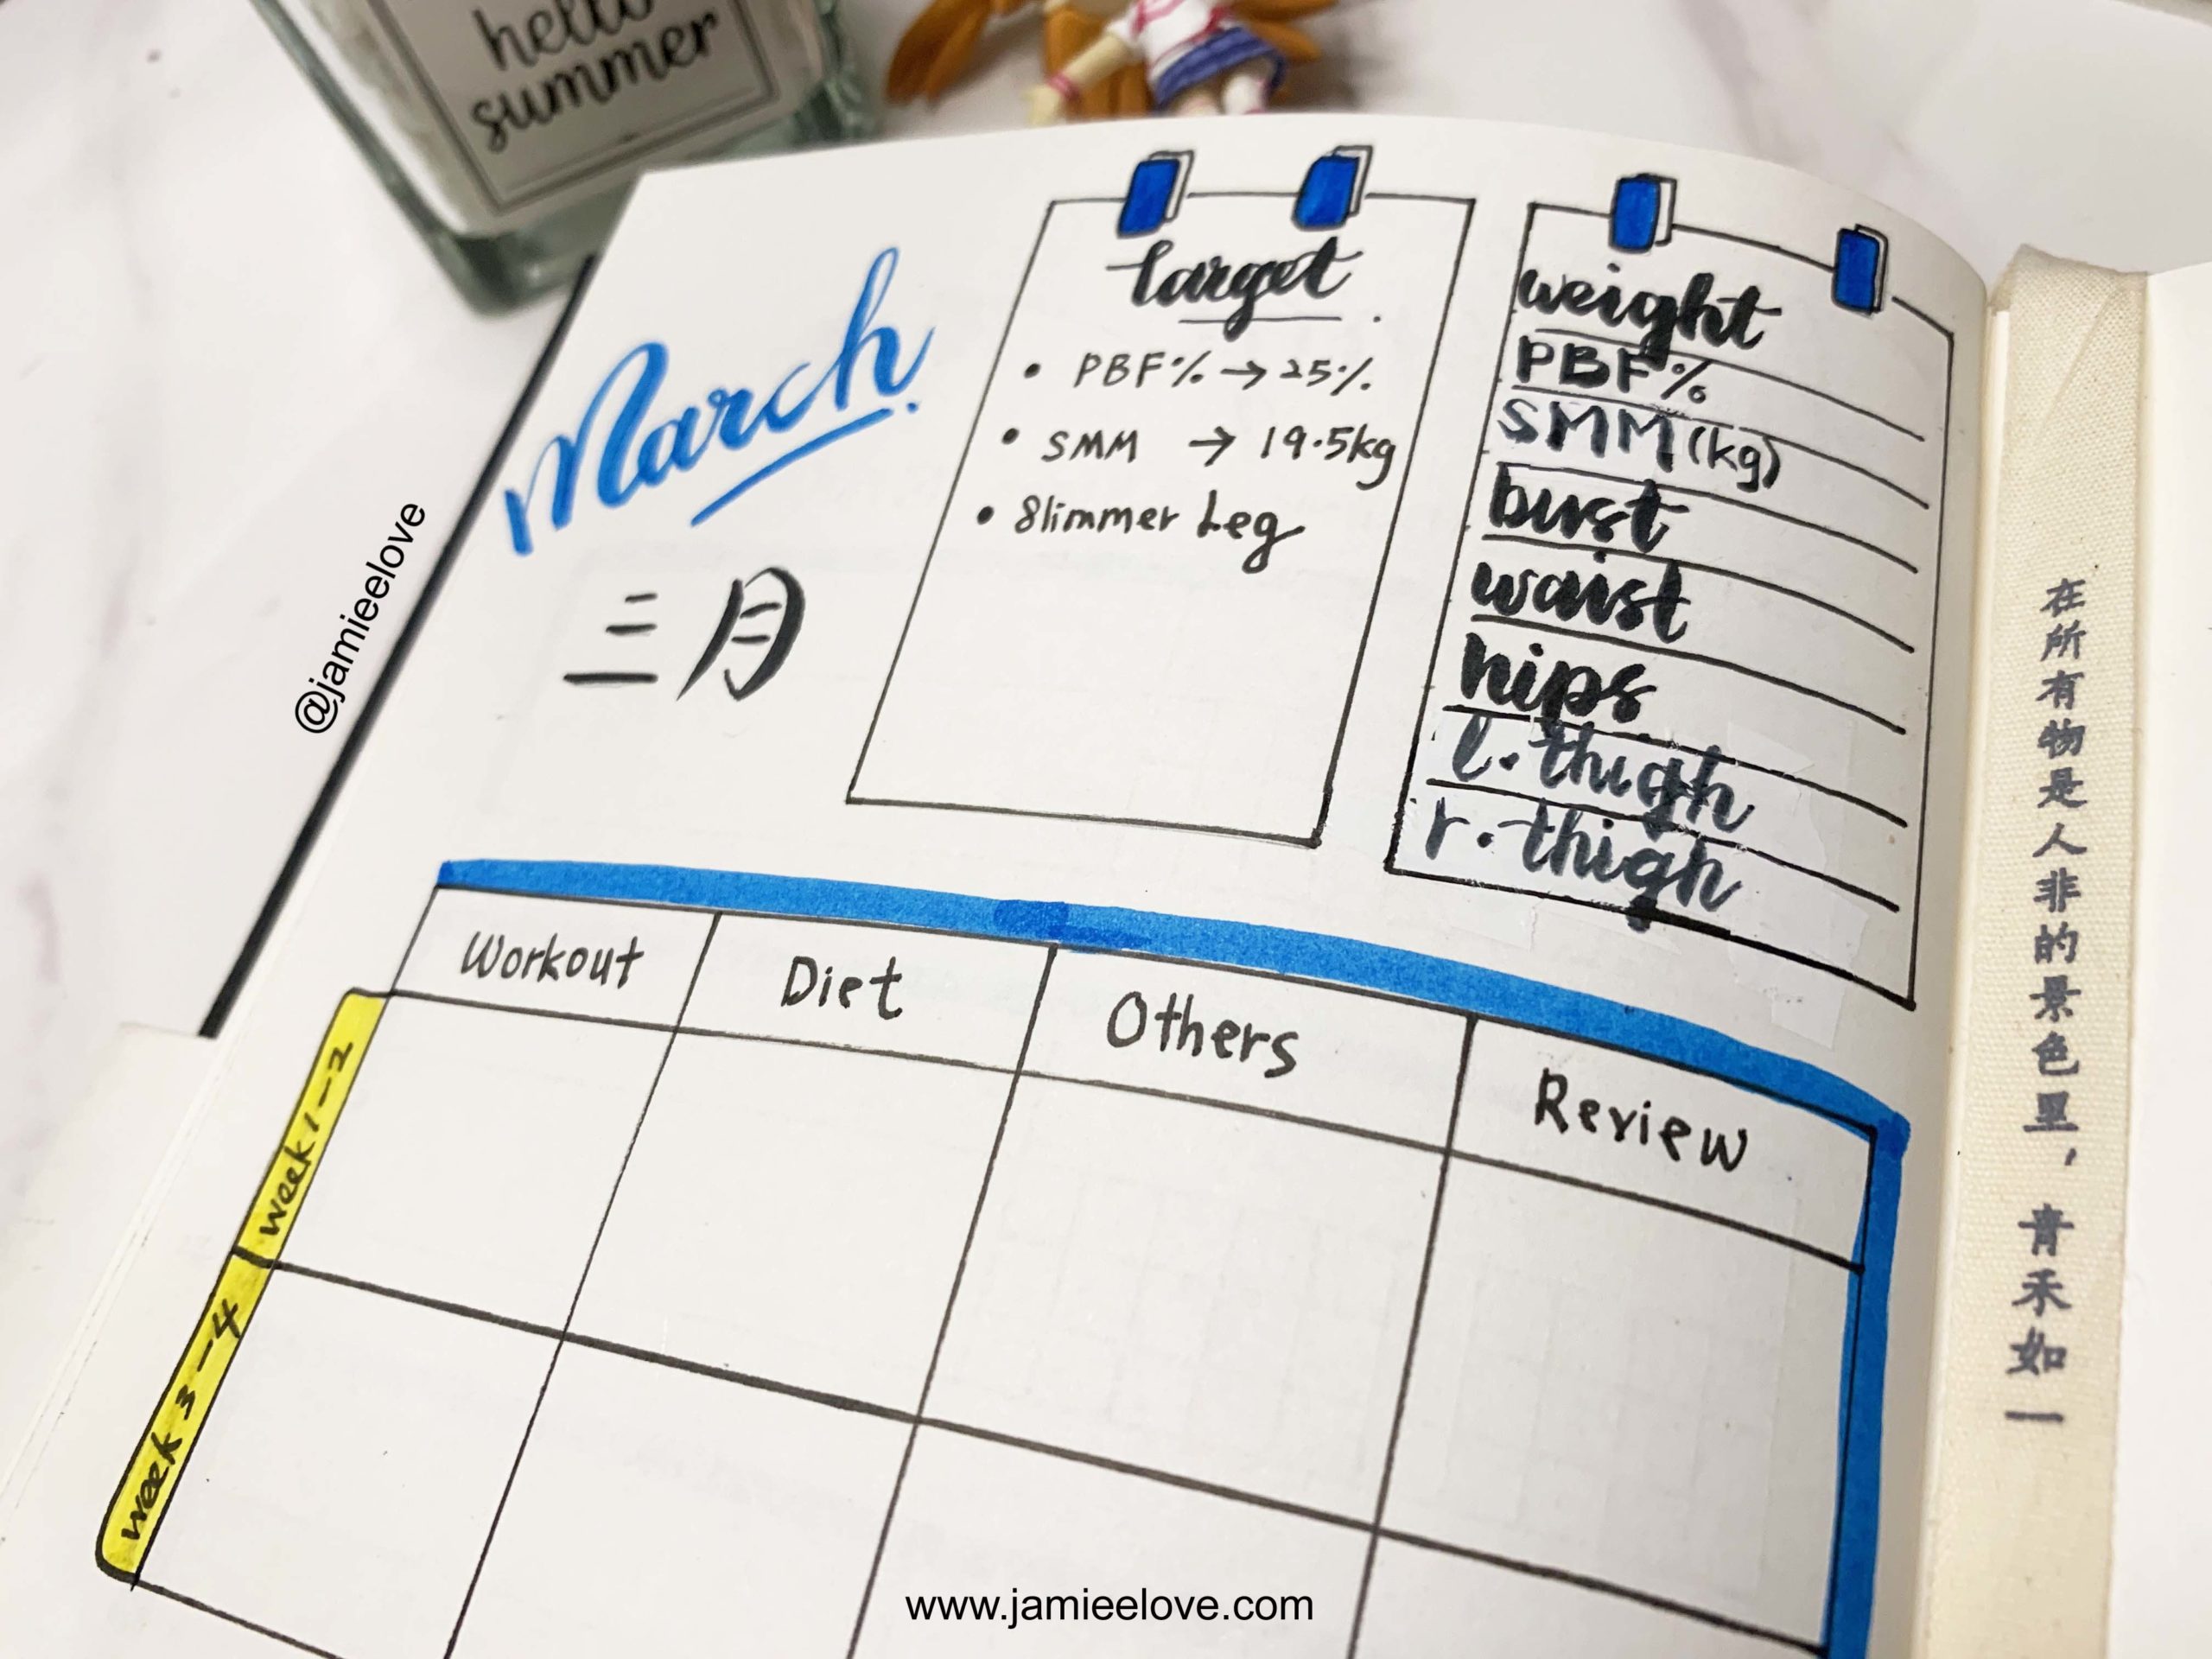 hello
summer
March
三月
target
• PBF% → 25%
• SMM → 19.5kg
• Slimmer Leg
weight
PBF%
SMM (kg)
bust
waist
hips
l. thigh
r. thigh
@jamieelove
Workout Diet Others Review
week 1-2
week 3-4
在所有物是人非的景色里，青禾如一
www.jamieelove.com